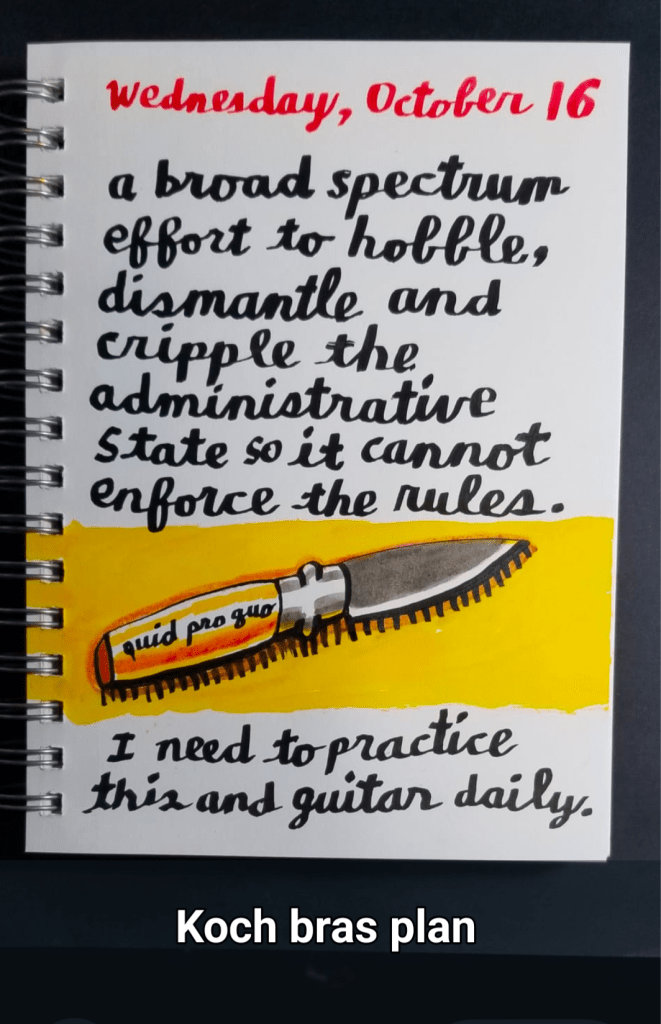 Wednesday, October 16
a broad spectrum
effort to hobble,
dismantle and
cripple the
administrative
State so it cannot
enforce the rules.
quid pro quo
I need to practice
this and guitar daily.
Koch bras plan